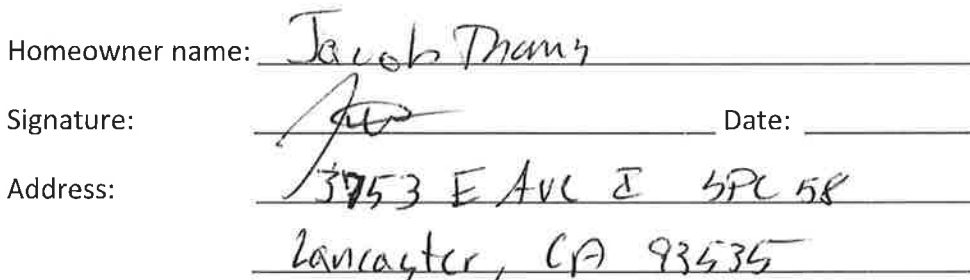 Homeowner name: Jacob Thoms
Signature: Date:
Address: 3753 E Ave I SPC 58
Lancaster, CA 93535